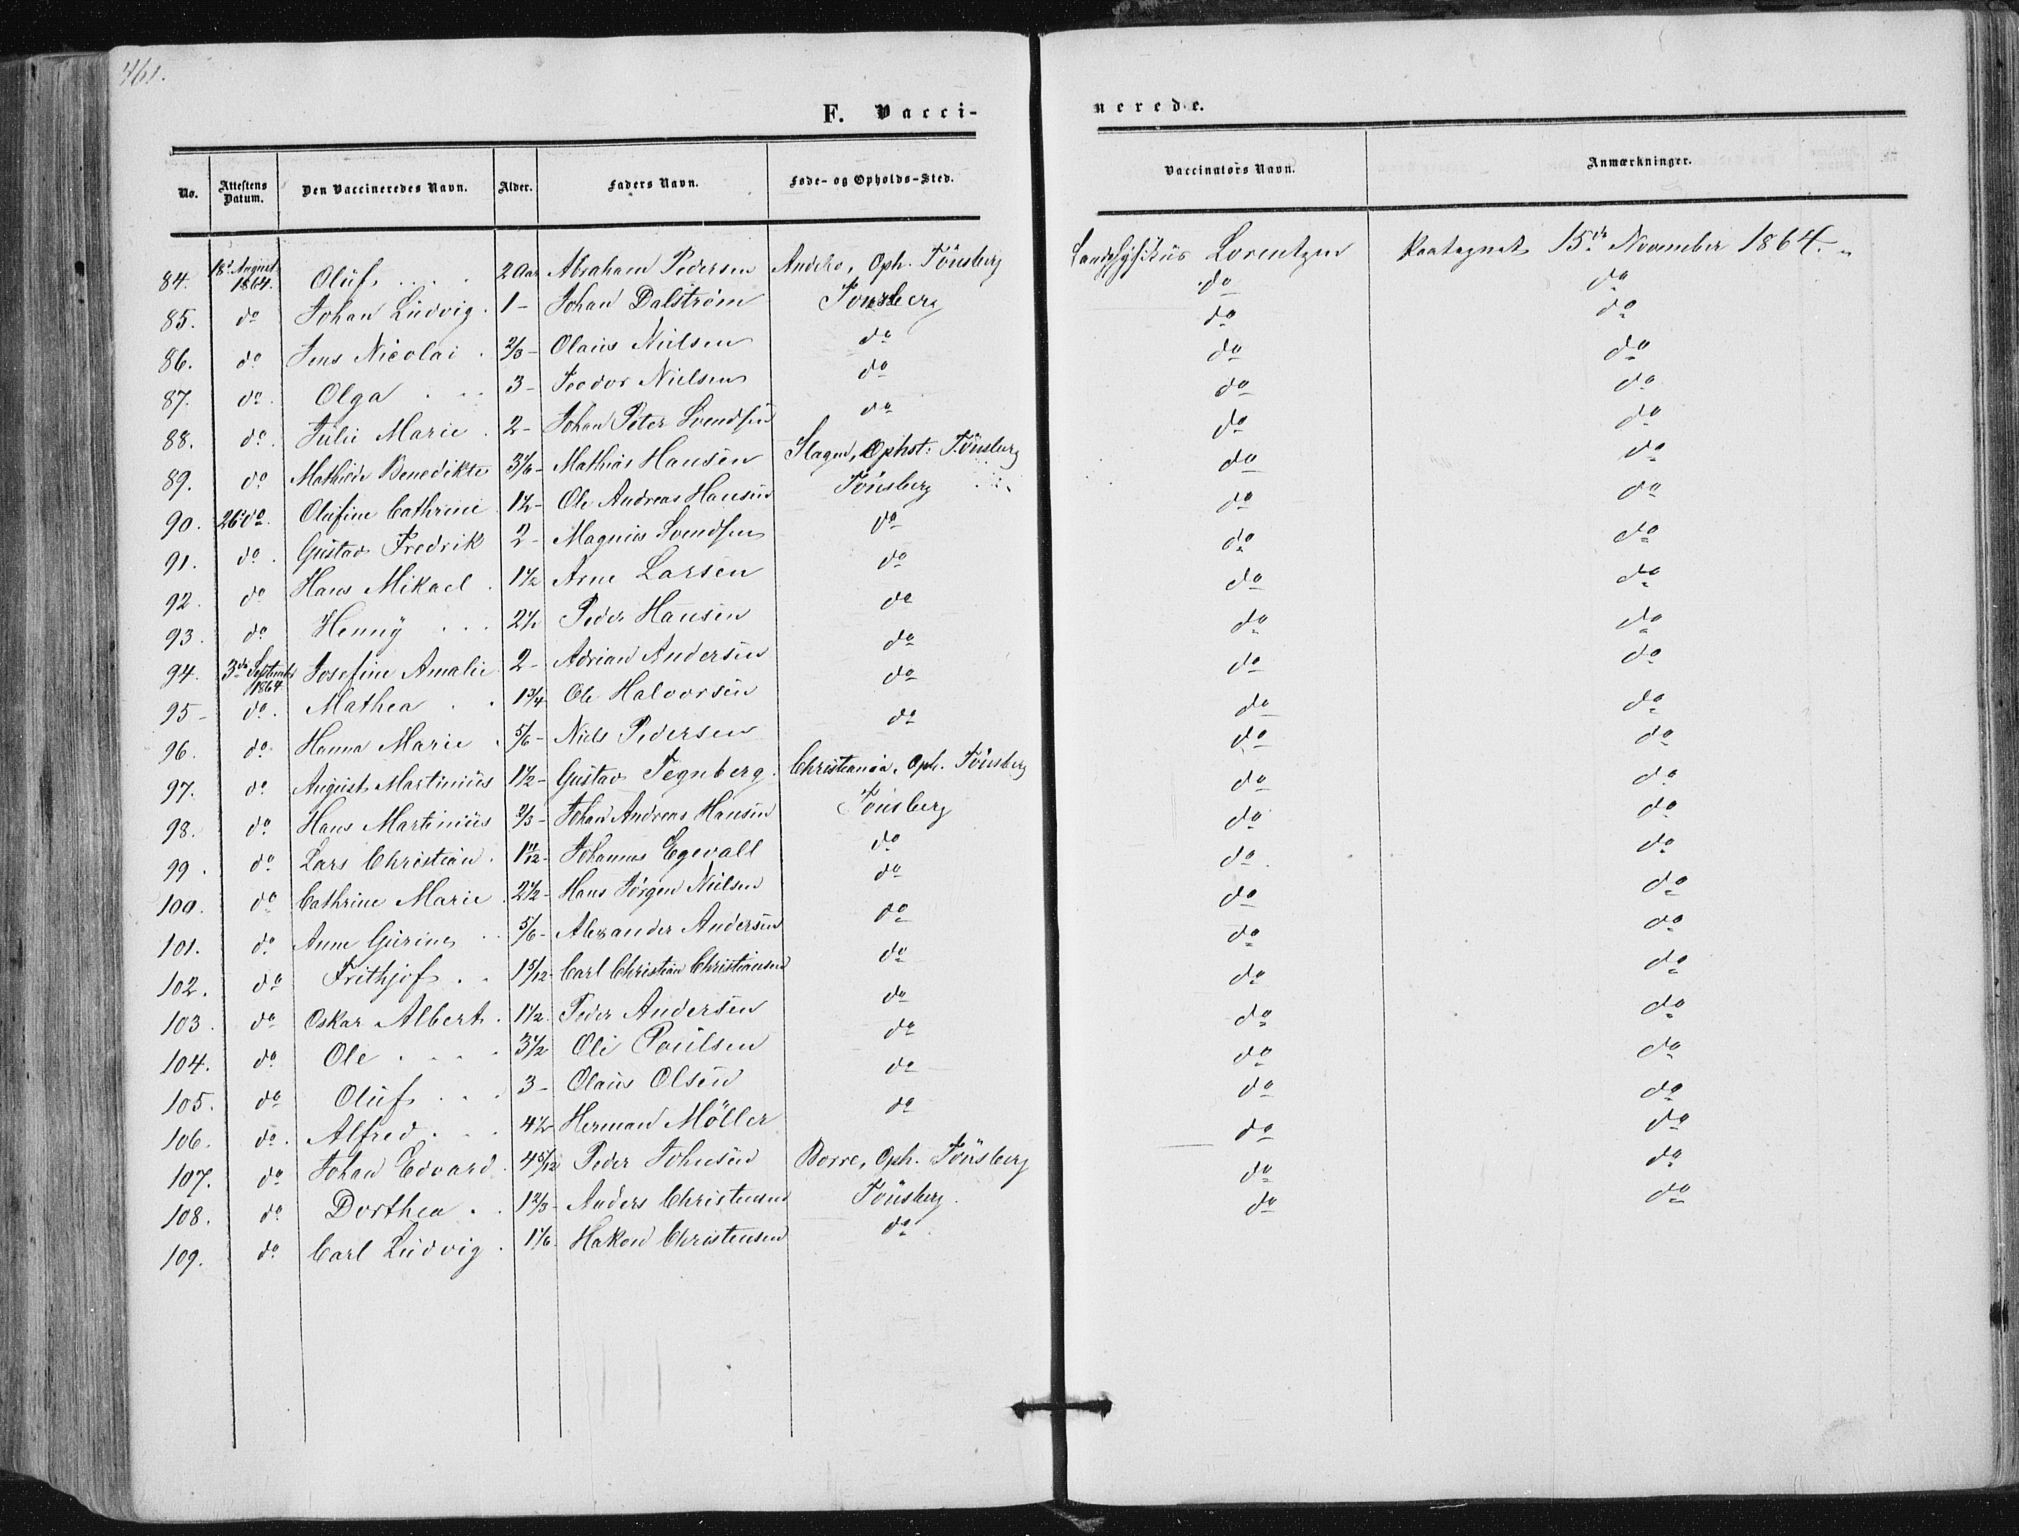 461.
F. Vacci-
nerede.
No. Attestens Datum. Den Vaccineredes Navn. Alder. Faders Navn. Føde- og Opholds-Sted. Vaccinatørs Navn. Anmærkninger.
84. 18. August 1864. Oluf 2 Aar Abraham Pedersen Oph. Tönsberg Landfysikus Lorentzen Paategnet 15de November 1864.
85. do Johan Ludvig 1 - Johan Dalström Tonsberg do do
86. do Jens Nicolai 2/3 - Olaus Nielsen do do do
87. do Olga 3 - Teodor Nielsen do do do
88. do Julie Marie 2 - Johan Peter Svendsen do do do
89. do Mathilde Benedikte 3 1/6 - Mathias Hansen Slagen, Ophst: Tönsberg do do
90. 26 do Olufine Cathrine 1 1/2 - Ole Andreas Hansen Tönsberg do do
91. do Gustav Fredrik 2 - Magnus Svendsen do do do
92. do Hans Mikael 1 1/2 Arne Larsen do do do
93. do Henny 2 1/2 Peder Hansen do do do
94. 3de Septembr 1864 Josefine Amalie 2 - Adrian Andersen do do do
95 - do Mathea 1 3/4 Ole Halvorsen do do do
96. do Hanna Marie 5/6 - Niels Pedersen do do do
97. do August Martinius 1 1/2 - Gustav Tegnberg. Christiania, Oph. Tönsberg do do
98. do Hans Martinius 2/3 - Johan Andreas Hansen Tönsberg do do
99. do Lars Christian 1 11/12 - Johannes Egevall do do do
100. do Cathrine Marie 2 1/2 - Hans Jörgen Nielsen do do do
101. do Anne Gurine 5/6 - Alexander Andersen do do do
102. do Frithjof 1 5/12 - Carl Christian Christiansen do do do
103. do Oskar Albert 1 1/2 Peder Andersen do do do
104. do Ole 3 1/2 Ole Poulsen do do do
105. do Oluf 3 - Olaus Olsen do do do
106. do Alfred 4 1/2 Herman Möller do do do
107. do Johan Edvard 4 5/12 Peder Johnsen Borre, Oph. Tönsberg do do
108. do Dorthea 1 2/3 - Anders Christensen Tönsberg. do do
109. do Carl Ludvig 1 1/6 Hakon Christensen do